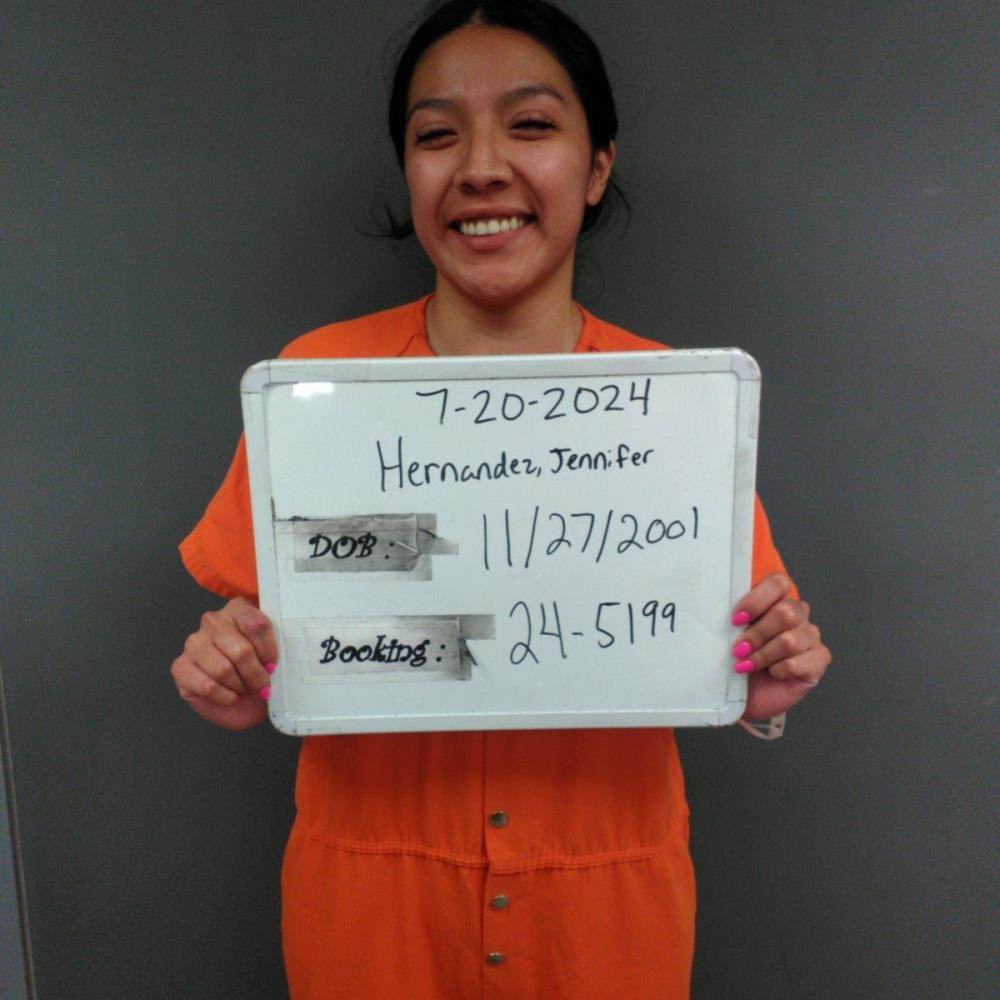 7-20-2024
Hernandez, Jennifer
DOB: 11/27/2001
Booking: 24-5199